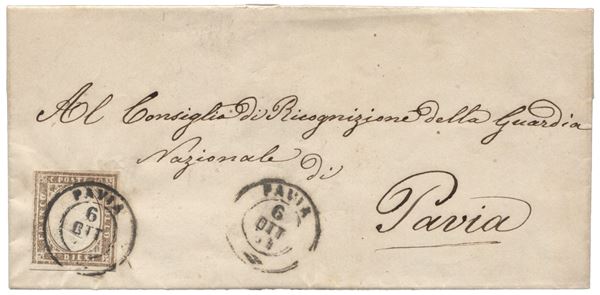 Al Consiglio di Ricognizione della Guardia
Nazionale di
Pavia
POSTE
DIECI
PAVIA
6
OTT
PAVIA
6
OTT